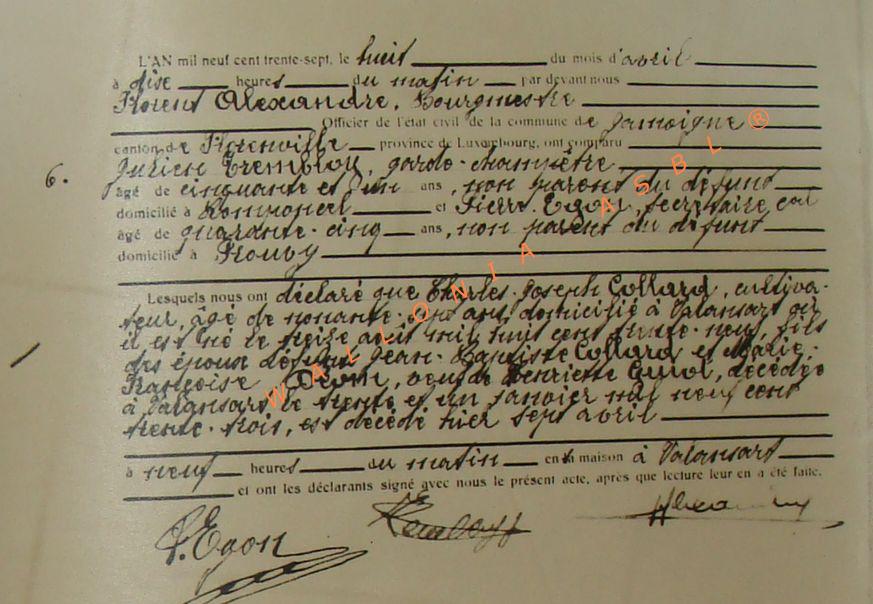 L'AN mil neuf cent trente-sept, le huit du mois d'avril
à dix heures du matin par devant nous
Florent Alexandre, Bourgmestre
Officier de l'état civil de la commune de Jamoigne
canton de Florenville province de Luxembourg, ont comparu
6. Tremblou, garde-champêtre
âgé de cinquante et un ans, non parent du défunt
domicilié à Romponcel et Pierre Egon, secrétaire
âgé de quarante-cinq ans, non parent du défunt
domicilié à Prouvy
Lesquels nous ont déclaré que Charles-Joseph Collard, cultiva-
teur, âgé de nonante ans, domicilié à Valansart où
il est né le seize août mil huit cent trente-neuf, fils
des époux défunts Jean-Baptiste Collard et Marie-
Françoise veuf de Henriette décédée
à Valansart le trente et un janvier mil neuf cent
trente-trois, est décédé hier sept avril
à neuf heures du matin en sa maison à Valansart
et ont les déclarants signé avec nous le présent acte, après que lecture leur en a été faite.
P. Egon
WALLONIA ASBL ®